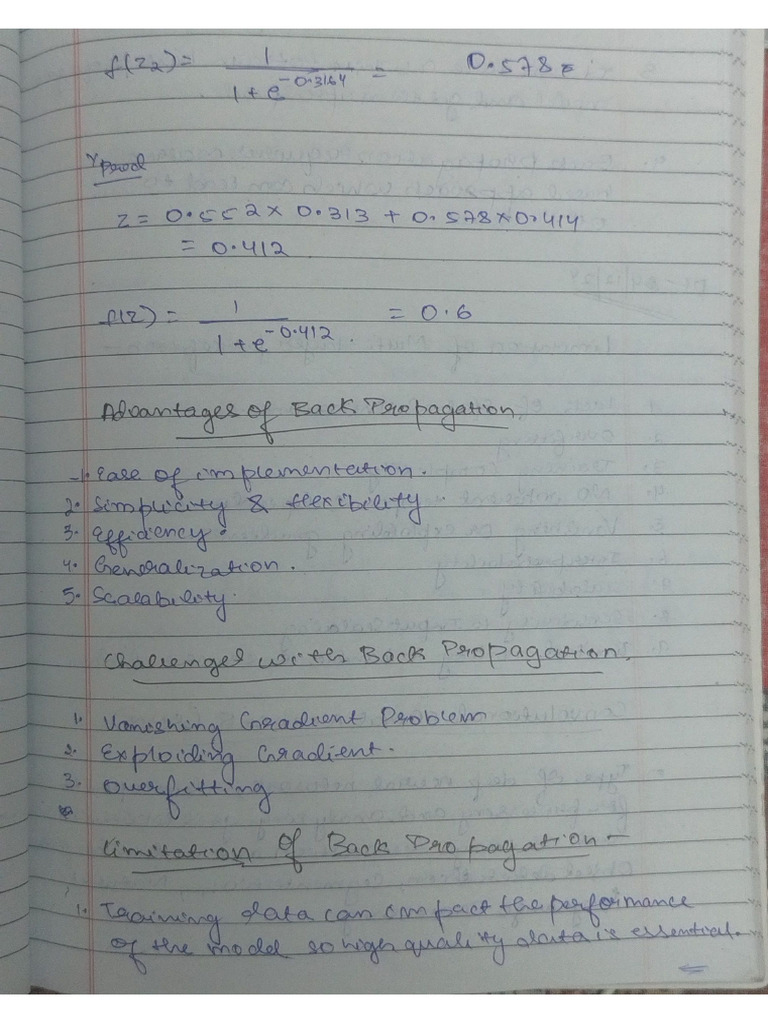 f(z2) = 1 / 1 + e^-0.3164 = 0.578
Ypred
z = 0.552 × 0.313 + 0.578 × 0.414
= 0.412
f(z) = 1 / 1 + e^-0.412. = 0.6
Advantages of Back Propagation.
1. Ease of implementation.
2. Simplicity & flexibility.
3. Efficiency.
4. Generalization.
5. Scalability.
Challenges with Back Propagation.
1. Vanishing Gradient Problem
2. Exploiding Gradient.
3. Overfitting
Limitation of Back Propagation –
1. Training data can impact the performance
of the model so high quality data is essential.